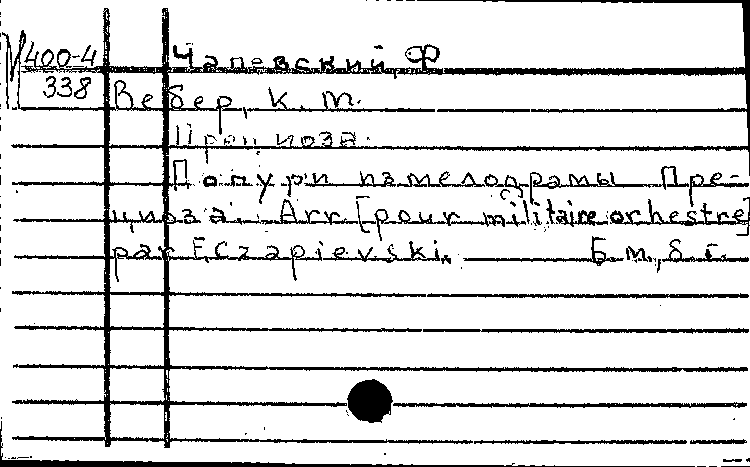 М 400-4 Чапевский, Ф
338 Вебер, К. М.
Прециоза.
Попури измелодрамы Пре-
циоза. Arr [pour militaire orchestre]
par F. Czapievski. — Б. м., б. г.